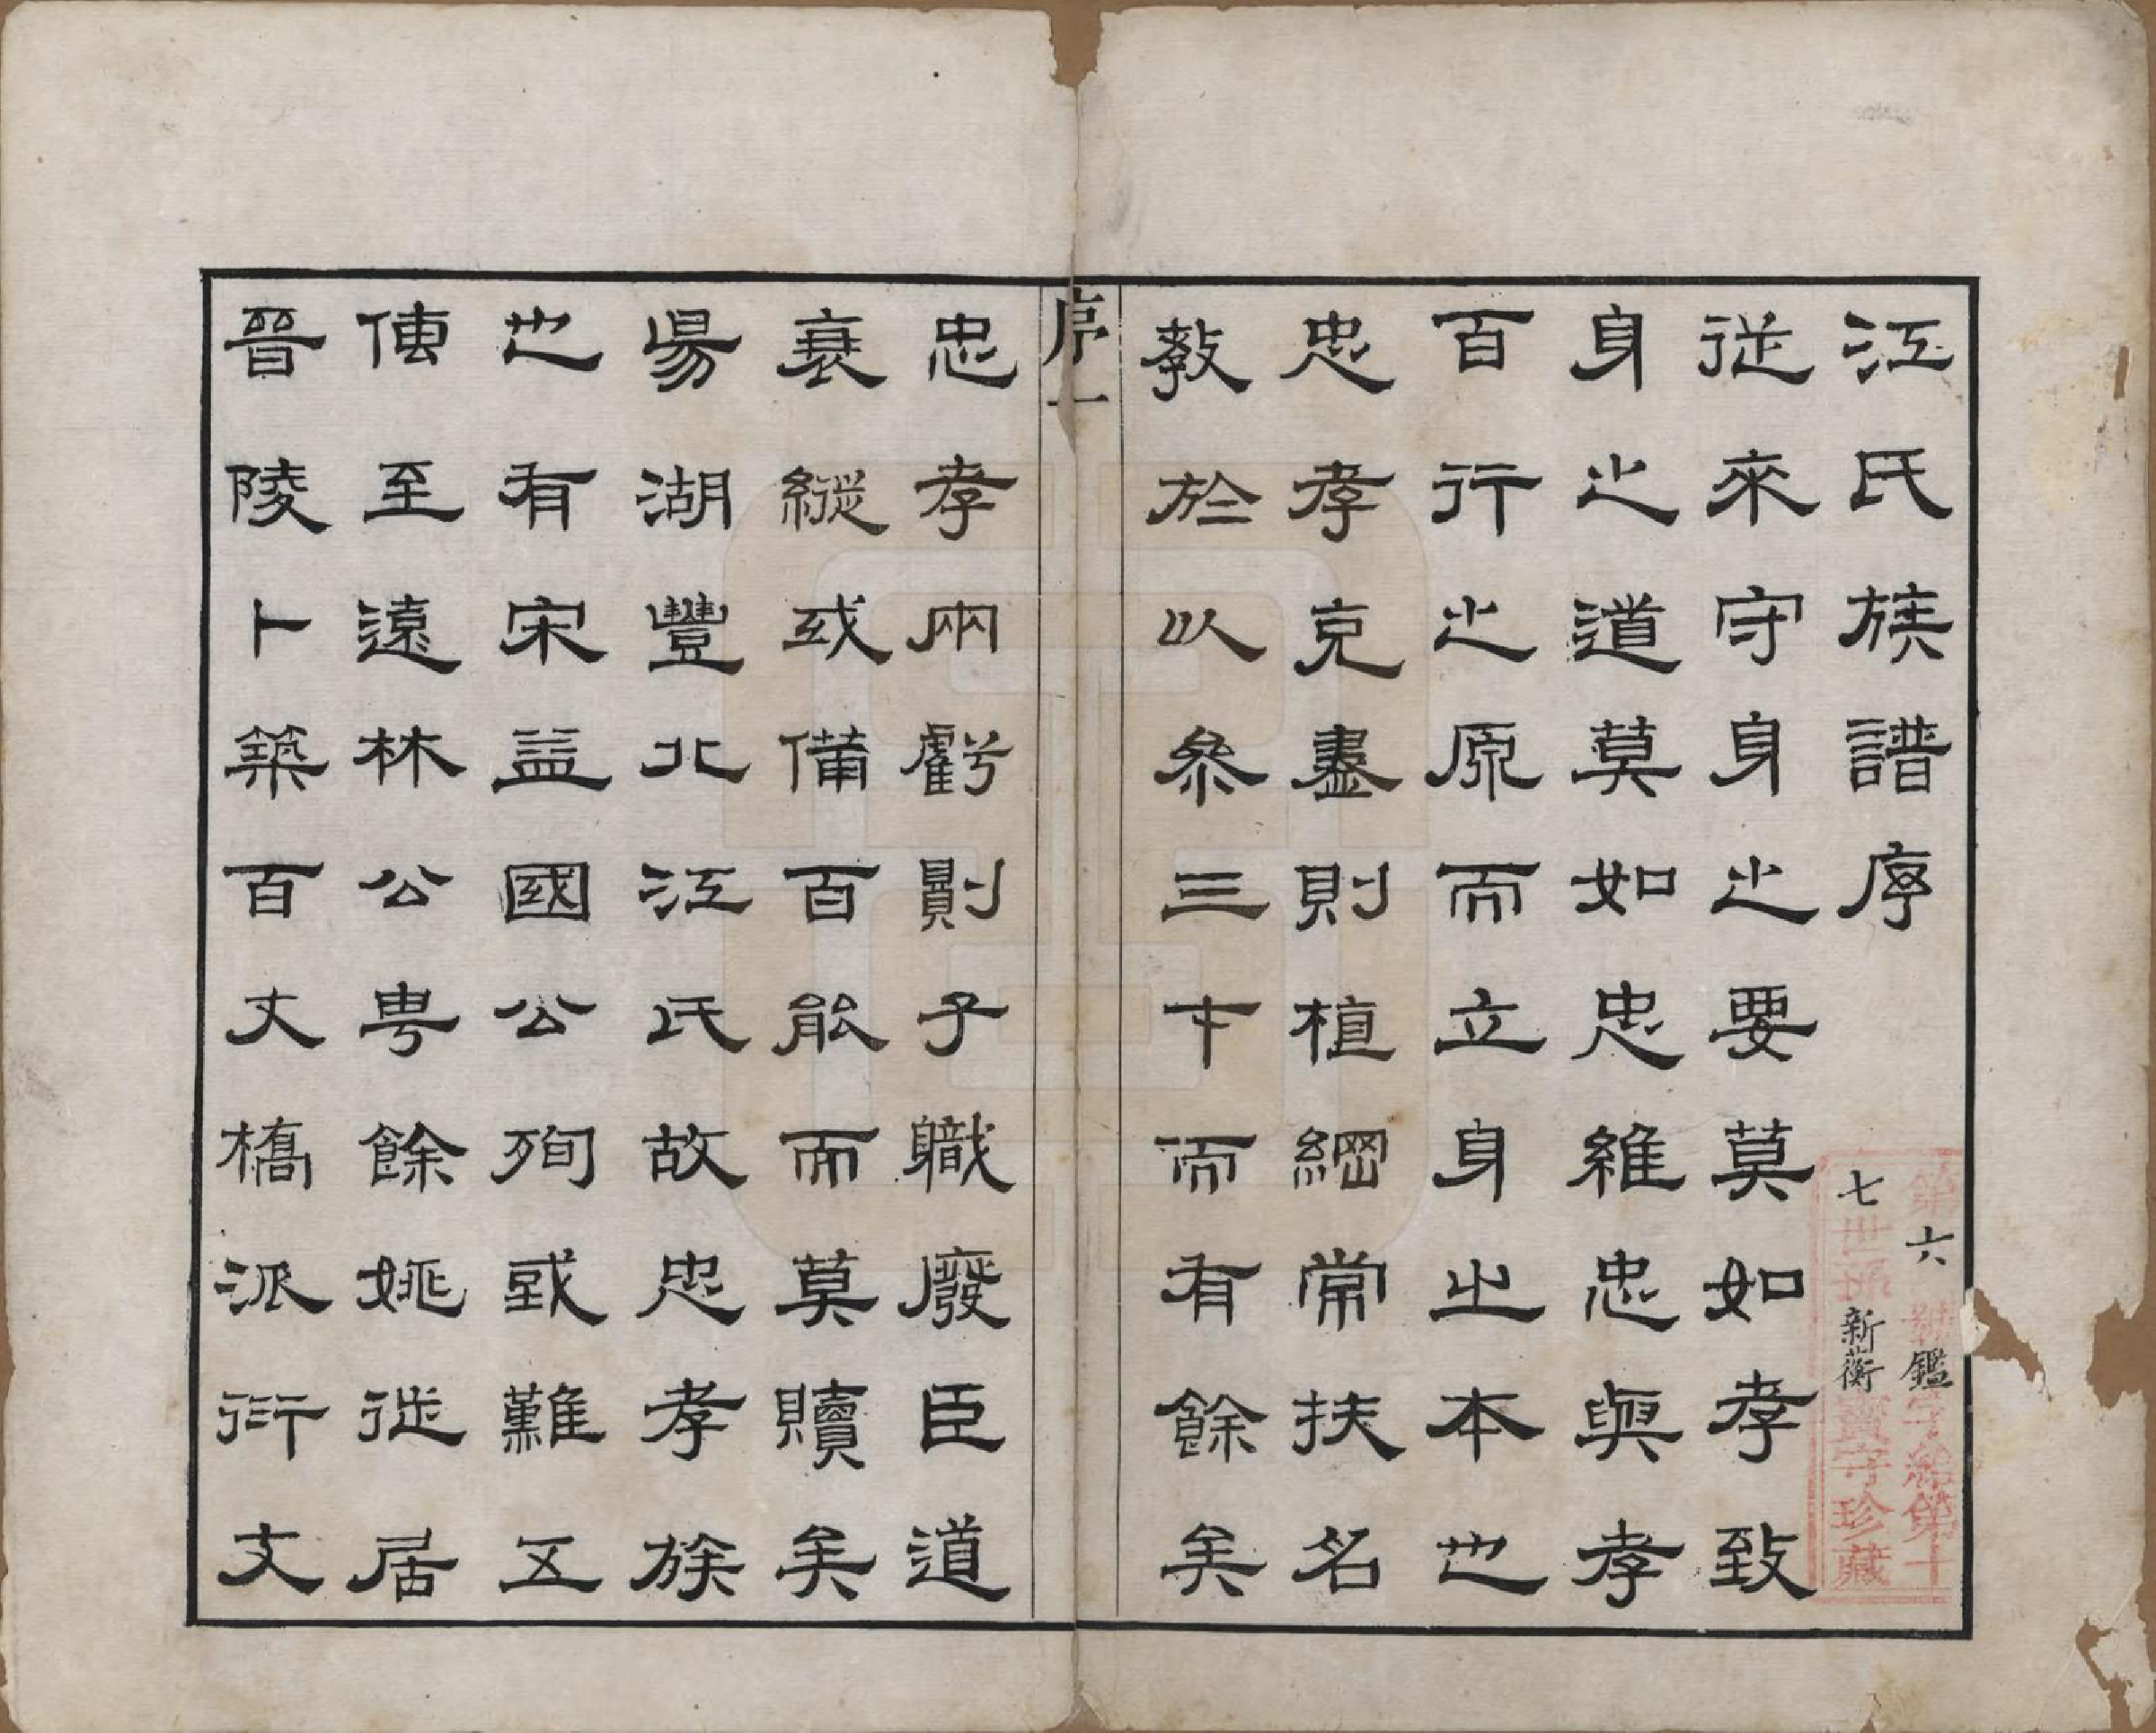 江氏族譜序
第六號鑑字給第十
七世孫新衡寶守珍藏
從來守身之要莫如孝致
身之道莫如忠維忠與孝
百行之原而立身之本也
忠孝克盡則植綱常扶名
教於以參三才而有餘矣
序一
忠孝兩虧則子職廢臣道
衰縱或備百能而莫贖矣
昜湖豐北江氏故忠孝族
也有宋益國公殉或難五
傳至遠林公粵餘姚徙居
晉陵卜築百丈橋派衍文